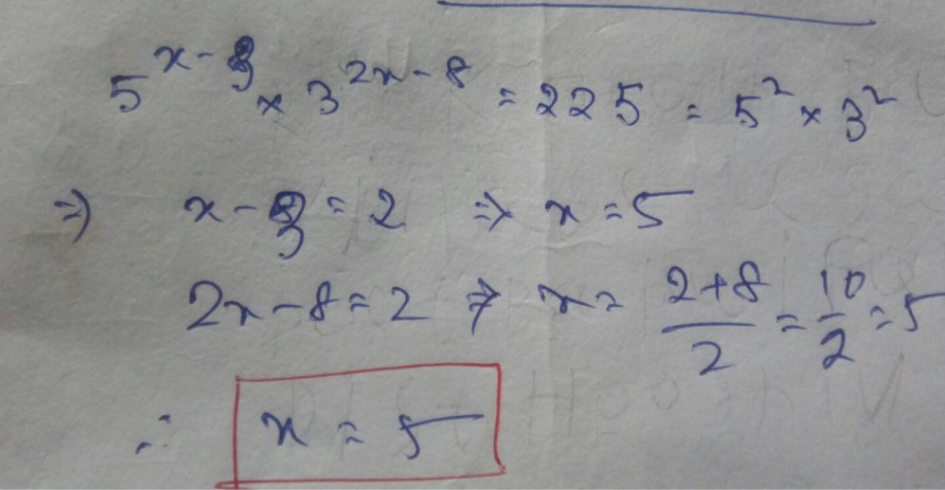 5^{x-3} × 3^{2x-8} = 225 = 5^2 × 3^2
⇒ x-3 = 2 ⇒ x = 5
2x-8 = 2 ⇒ x = \frac{2+8}{2} = \frac{10}{2} = 5
∴ x = 5